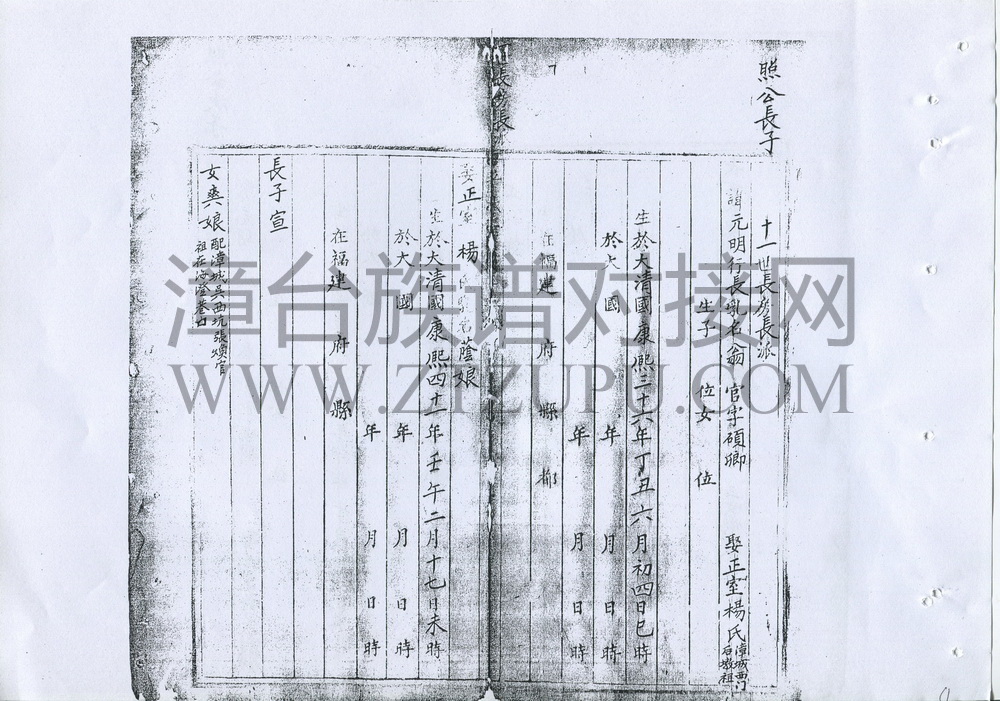 照公長子
十一世長房長派
諱元明行長乳名翁官字碩卿 娶正室楊氏
漳城西門
石墩祖
生子 位女 位
生於大清國康熙三十六年丁丑六月初四日巳時
於大 國 年 月 日 時
年 月 日 時
在福建 府 縣 都
長房長
娶正室 楊氏 名蔭娘
生於大清國康熙四十一年壬午二月十七日未時
於大 國 年 月 日 時
年 月 日 時
在福建 府 縣
長子宣
女爽娘
配漳城吳西坑張煥官
祖在海澄
漳台族谱对接网
WWW.ZTZUPU.COM